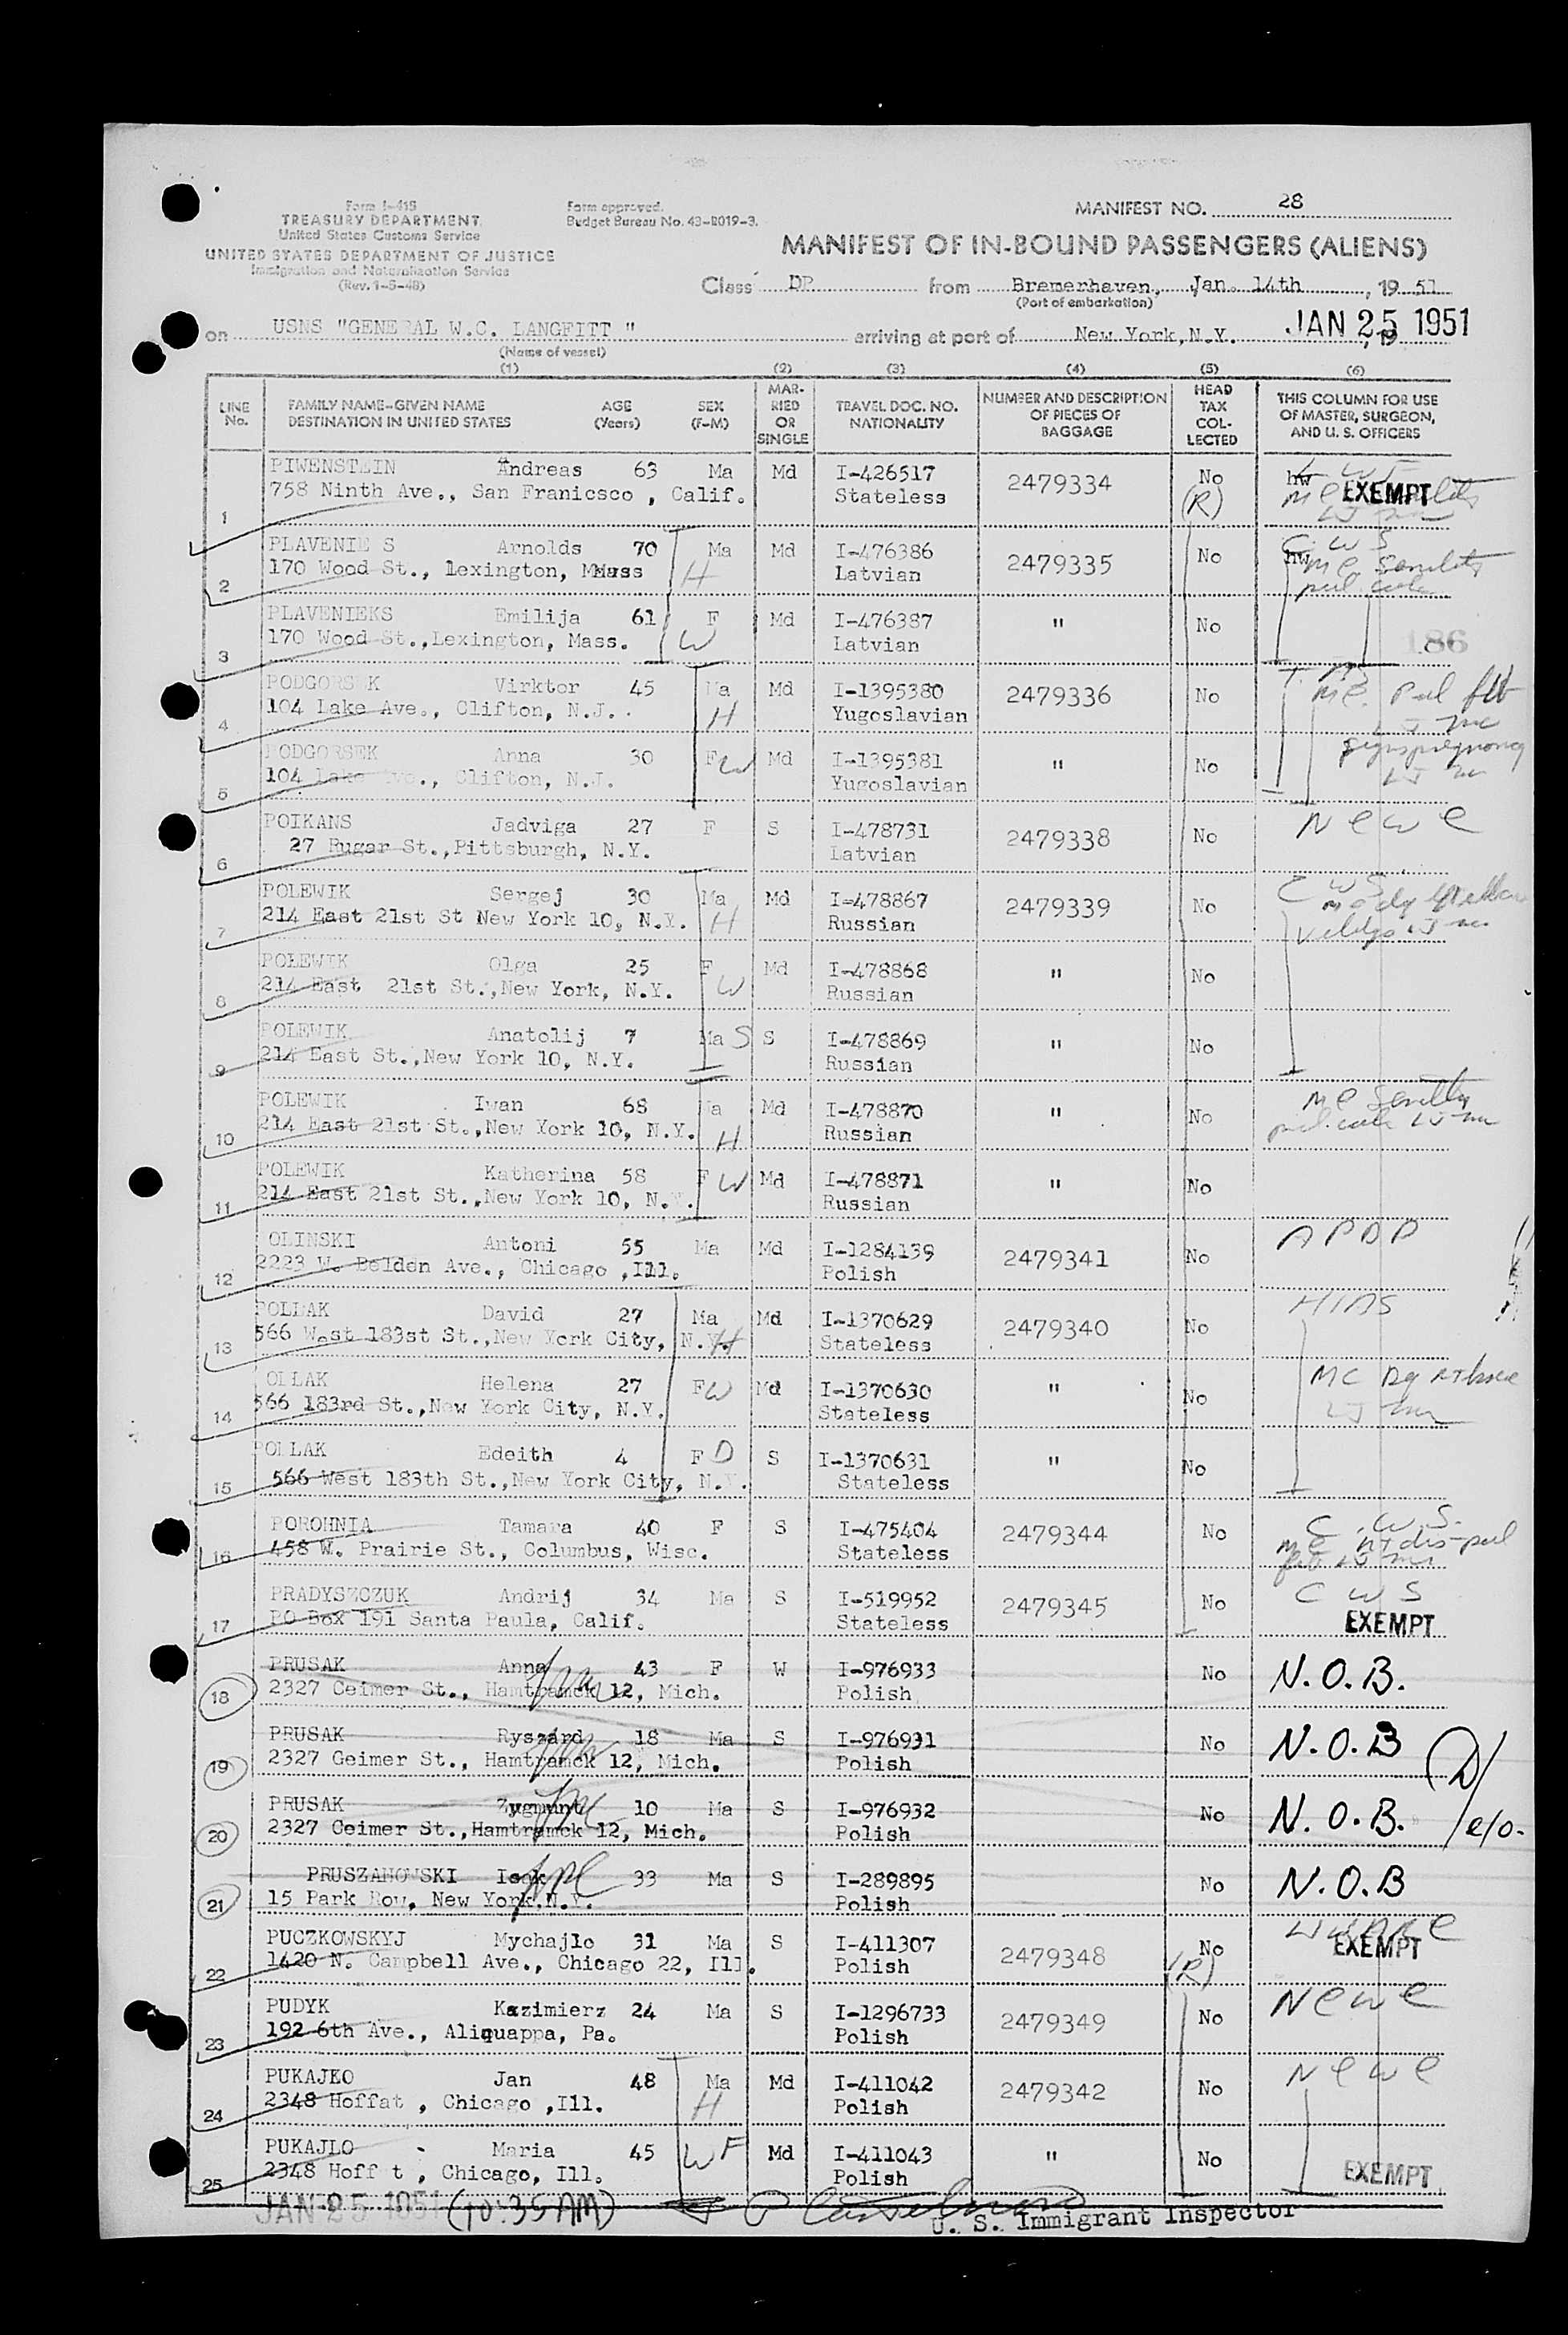 Form I-418
TREASURY DEPARTMENT
United States Customs Service
UNITED STATES DEPARTMENT OF JUSTICE
Immigration and Naturalization Service
(Rev. 1-5-48)
Form approved.
Budget Bureau No. 43-R019-3.
MANIFEST NO. 28
MANIFEST OF IN-BOUND PASSENGERS (ALIENS)
Class DP from Bremerhaven, Jan. 14th, 19 51
(Port of embarkation)
on USNS "GENERAL W.C. LANGFITT " arriving at port of New York, N.Y. JAN 25 1951, 19
(Name of vessel)
(1) (2) (3) (4) (5) (6)
LINE No. FAMILY NAME-GIVEN NAME DESTINATION IN UNITED STATES AGE (Years) SEX (F-M) MARRIED OR SINGLE TRAVEL DOC. NO. NATIONALITY NUMBER AND DESCRIPTION OF PIECES OF BAGGAGE HEAD TAX COLLECTED THIS COLUMN FOR USE OF MASTER, SURGEON, AND U. S. OFFICERS
PIWENSTEIN Andreas 63 Ma Md I-426517 2479334 No (R) hw EXEMPT
1 758 Ninth Ave., San Franicsco , Calif. Stateless
PLAVENIE S Arnolds 70 Ma Md I-476386 2479335 No hw C W S
2 170 Wood St., lexington, Mass H Latvian me Senility
PLAVENIEKS Emilija 61 F Md I-476387 " No
3 170 Wood St.,Lexington, Mass. W Latvian 186
PODGORSEK Virktor 45 Ma Md I-1395380 2479336 No
4 104 Lake Ave., Clifton, N.J. H Yugoslavian
PODGORSEK Anna 30 F W Md I-1395381 " No
5 104 Lake Ave., Clifton, N.J. Yugoslavian
POIKANS Jadviga 27 F S I-478731 2479338 No N C W C
6 27 Rugar St.,Pittsburgh, N.Y. Latvian
POLEWIK Sergej 30 Ma Md I-478867 2479339 No C W S
7 214 East 21st St New York 10, N.Y. H Russian
POLEWIK Olga 25 F Md I-478868 " No
8 214 East 21st St.,New York, N.Y. W Russian
POLEWIK Anatolij 7 Ma S S I-478869 " No
9 214 East St.,New York 10, N.Y. Russian
POLEWIK Iwan 68 Ma Md I-478870 " No me Senility
10 214 East 21st St.,New York 10, N.Y. H Russian
POLEWIK Katherina 58 F W Md I-478871 " No
11 214 East 21st St.,New York 10, N. . Russian
OLINSKI Antoni 55 Ma Md I-1284139 2479341 No A P D P
12 2223 W. Belden Ave., Chicago ,Ill. Polish
POLLAK David 27 Ma Md I-1370629 2479340 No HIAS
13 566 West 183st St.,New York City, N.Y. H Stateless
OLLAK Helena 27 F W Md I-1370630 " No
14 566 183rd St.,New York City, N.Y. Stateless
POLLAK Edeith 4 F D S I-1370631 " No
15 566 West 183th St.,New York City, N.Y. Stateless
POROHNIA Tamara 40 F S I-475404 2479344 No C.W.S.
16 458 W. Prairie St., Columbus, Wisc. Stateless
PRADYSZCZUK Andrij 34 Ma S I-519952 2479345 No C W S
17 PO Box 191 Santa Paula, Calif. Stateless EXEMPT
PRUSAK Anna 43 F W I-976933 No N.O.B.
18 2327 Geimer St., Hamtramck 12, Mich. Polish
PRUSAK Ryszard 18 Ma S I-976931 No N.O.B
19 2327 Geimer St., Hamtramck 12, Mich. Polish
PRUSAK Zygmunt 10 Ma S I-976932 No N.O.B.
20 2327 Geimer St.,Hamtramck 12, Mich. Polish
PRUSZANOWSKI Isak 33 Ma S I-289895 No N.O.B
21 15 Park Row, New York.N.Y. Polish
PUCZKOWSKYJ Mychajlo 31 Ma S I-411307 2479348 No (R) EXEMPT
22 1420 N. Campbell Ave., Chicago 22, Ill. Polish
PUDYK Kazimierz 24 Ma S I-1296733 2479349 No N C W C
23 192 6th Ave., Aliquappa, Pa. Polish
PUKAJLO Jan 48 Ma Md I-411042 2479342 No N C W C
24 2348 Hoffat , Chicago ,Ill. H Polish
PUKAJLO Maria 45 W F Md I-411043 " No
25 2348 Hoff t , Chicago, Ill. Polish EXEMPT
JAN 25 1951 (10:35 AM)
U. S. Immigrant Inspector